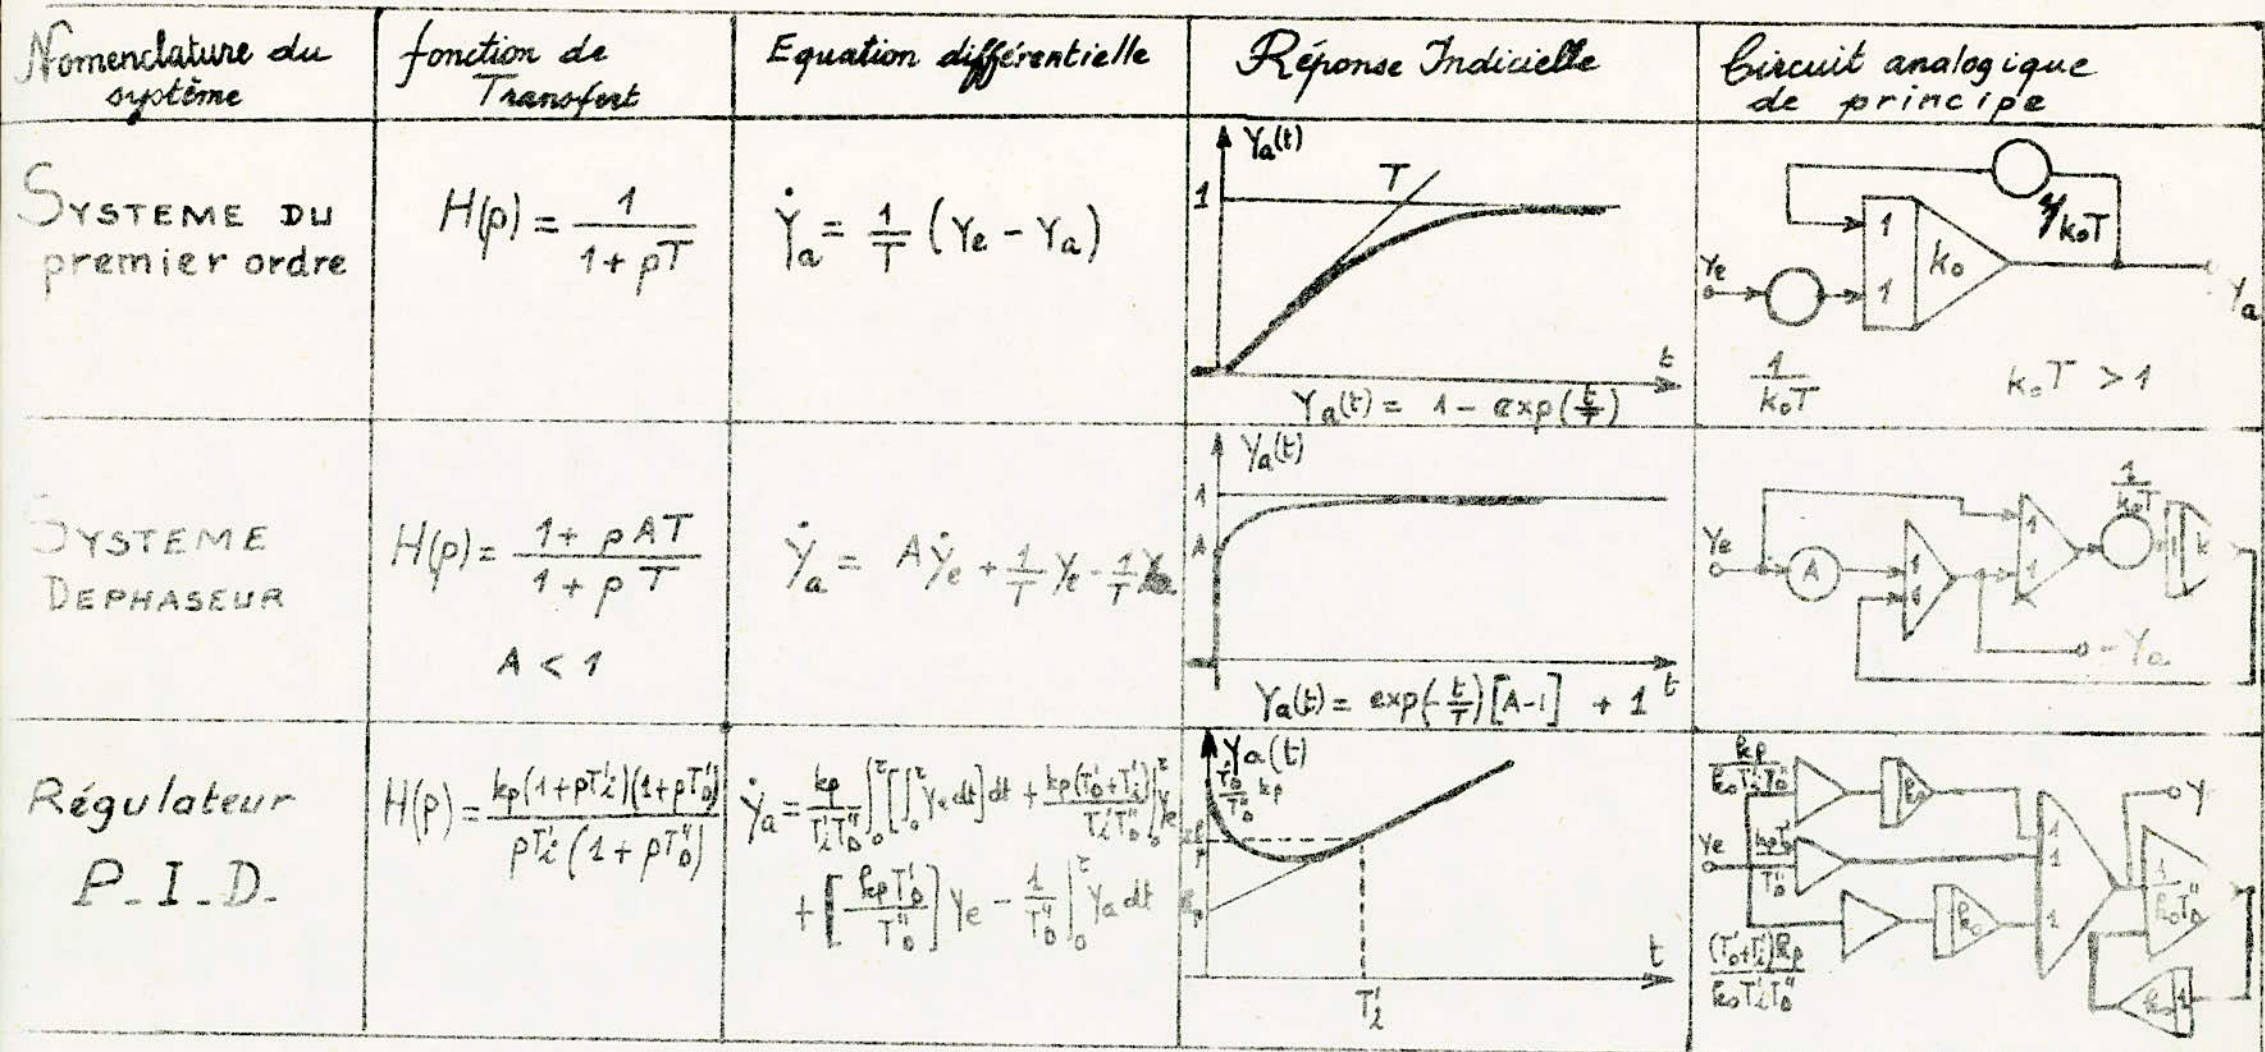 Nomenclature du système
fonction de Transfert
Equation différentielle
Réponse Indicielle
Circuit analogique de principe
SYSTEME DU premier ordre
H(p) = 1 / (1 + pT)
Ẏa = 1/T (Ye - Ya)
Ya(t)
T
1
t
Ya(t) = 1 - exp(t/T)
1/k₀T
1
k₀
Ye
1
Ya
1/k₀T
k₀T > 1
SYSTEME DEPHASEUR
H(p) = (1 + pAT) / (1 + pT)
A < 1
Ẏa = Aẏe + 1/T ye - 1/T ya
Ya(t)
1
A
t
Ya(t) = exp(-t/T)[A-1] + 1
1/k₀T
Ye
A
1
1
1
1
k
-Ya
Régulateur P.I.D.
H(p) = kp(1+pT'i)(1+pT'D) / pT'i(1+pT"D)
Ẏa = kp/T'iT"D ∫₀ᵗ[∫₀ᵗ Ye dt]dt + kp(T'D+T'i)/T'iT"D ∫₀ᵗ Ye
+ [kpT'D/T"D] Ye - 1/T"D ∫₀ᵗ Ya dt
Ya(t)
T'D/T"D kp
kp
t
T'i
kp/k₀T'iT"D
k₀
Y
Ye
kpT'D/T"D
1
1
1
k₀
1/k₀T"D
(T'D+T'i)kp/k₀T'iT"D
k₀
1